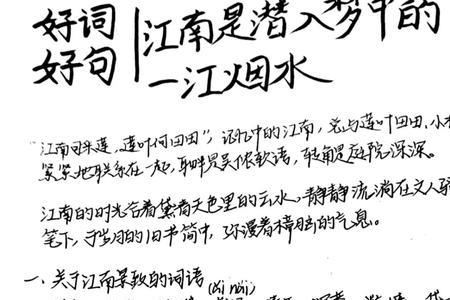 好词
好句
江南是潜入梦中的
一江烟水
"江南可采莲,莲叶何田田",记忆中的江南,总与莲叶田田、小
紧紧地联系在一起,耳畔是吴侬软语,转角是庭院深深。
江南的时光合着黛青天色里的云水,静静流淌在文人
笔下,于岁月的旧书简中,弥漫着樟脑的气息。
一、关于江南景致的词语